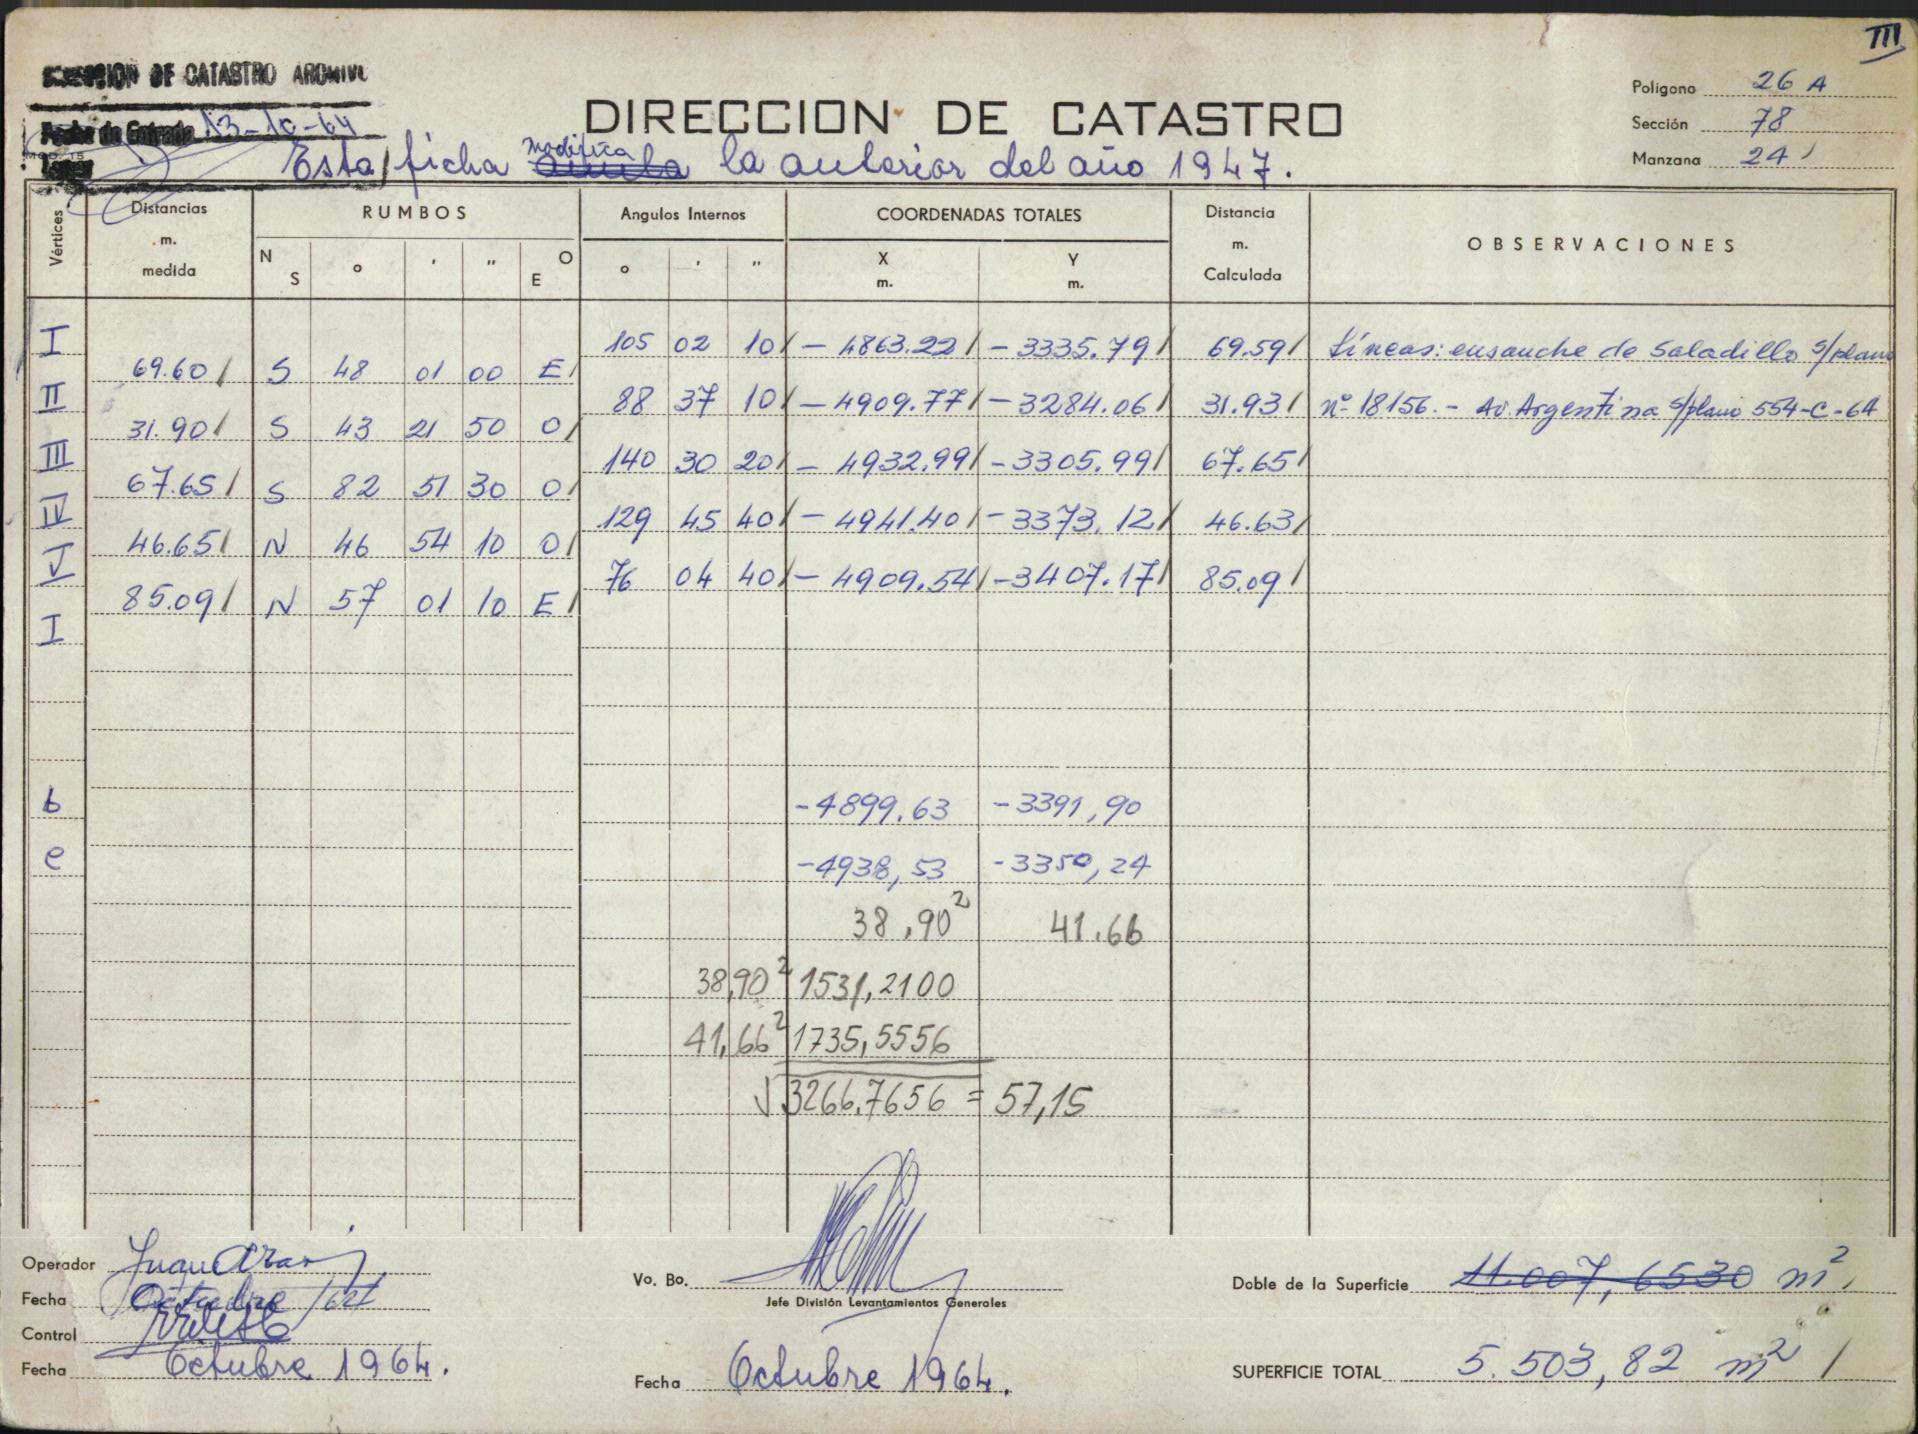 III
DIRECCION DE CATASTRO ARCHIVO
Fecha de Entrada 13-10-64
DIRECCION DE CATASTRO
Poligono 26 A
Sección 78
Manzana 24
Esta ficha modifica anula la anterior del año 1947.
Vértices Distancias m. medida RUMBOS Angulos Internos COORDENADAS TOTALES Distancia m. Calculada OBSERVACIONES
N S ° ' " O E ° ' " X m. Y m.
I 105 02 10 - 4863.22 - 3335.79 69.59 Líneas: ensanche de Saladillo s/plano
69.60 S 48 01 00 E
II 88 37 10 - 4909.77 - 3284.06 31.93 nº 18156. - Av. Argentina s/plano 554-C-64
31.90 S 43 21 50 O
III 140 30 20 - 4932.99 - 3305.99 67.65
67.65 S 82 51 30 O
IV 129 45 40 - 4941.40 - 3373.12 46.63
46.65 N 46 54 10 O
V 76 04 40 - 4909.54 - 3407.17 85.09
85.09 N 57 01 10 E
I
b -4899.63 -3391,90
e -4938,53 -3350,24
38,90² 41.66
38,90² 1531,2100
41,66² 1735,5556
√3266.7656 = 57,15
Operador Juan
Fecha Octubre /64
Control
Fecha Octubre 1964.
Vo. Bo.
Jefe División Levantamientos Generales
Fecha Octubre 1964.
Doble de la Superficie 11.007,6530 m²
SUPERFICIE TOTAL 5.503,82 m²